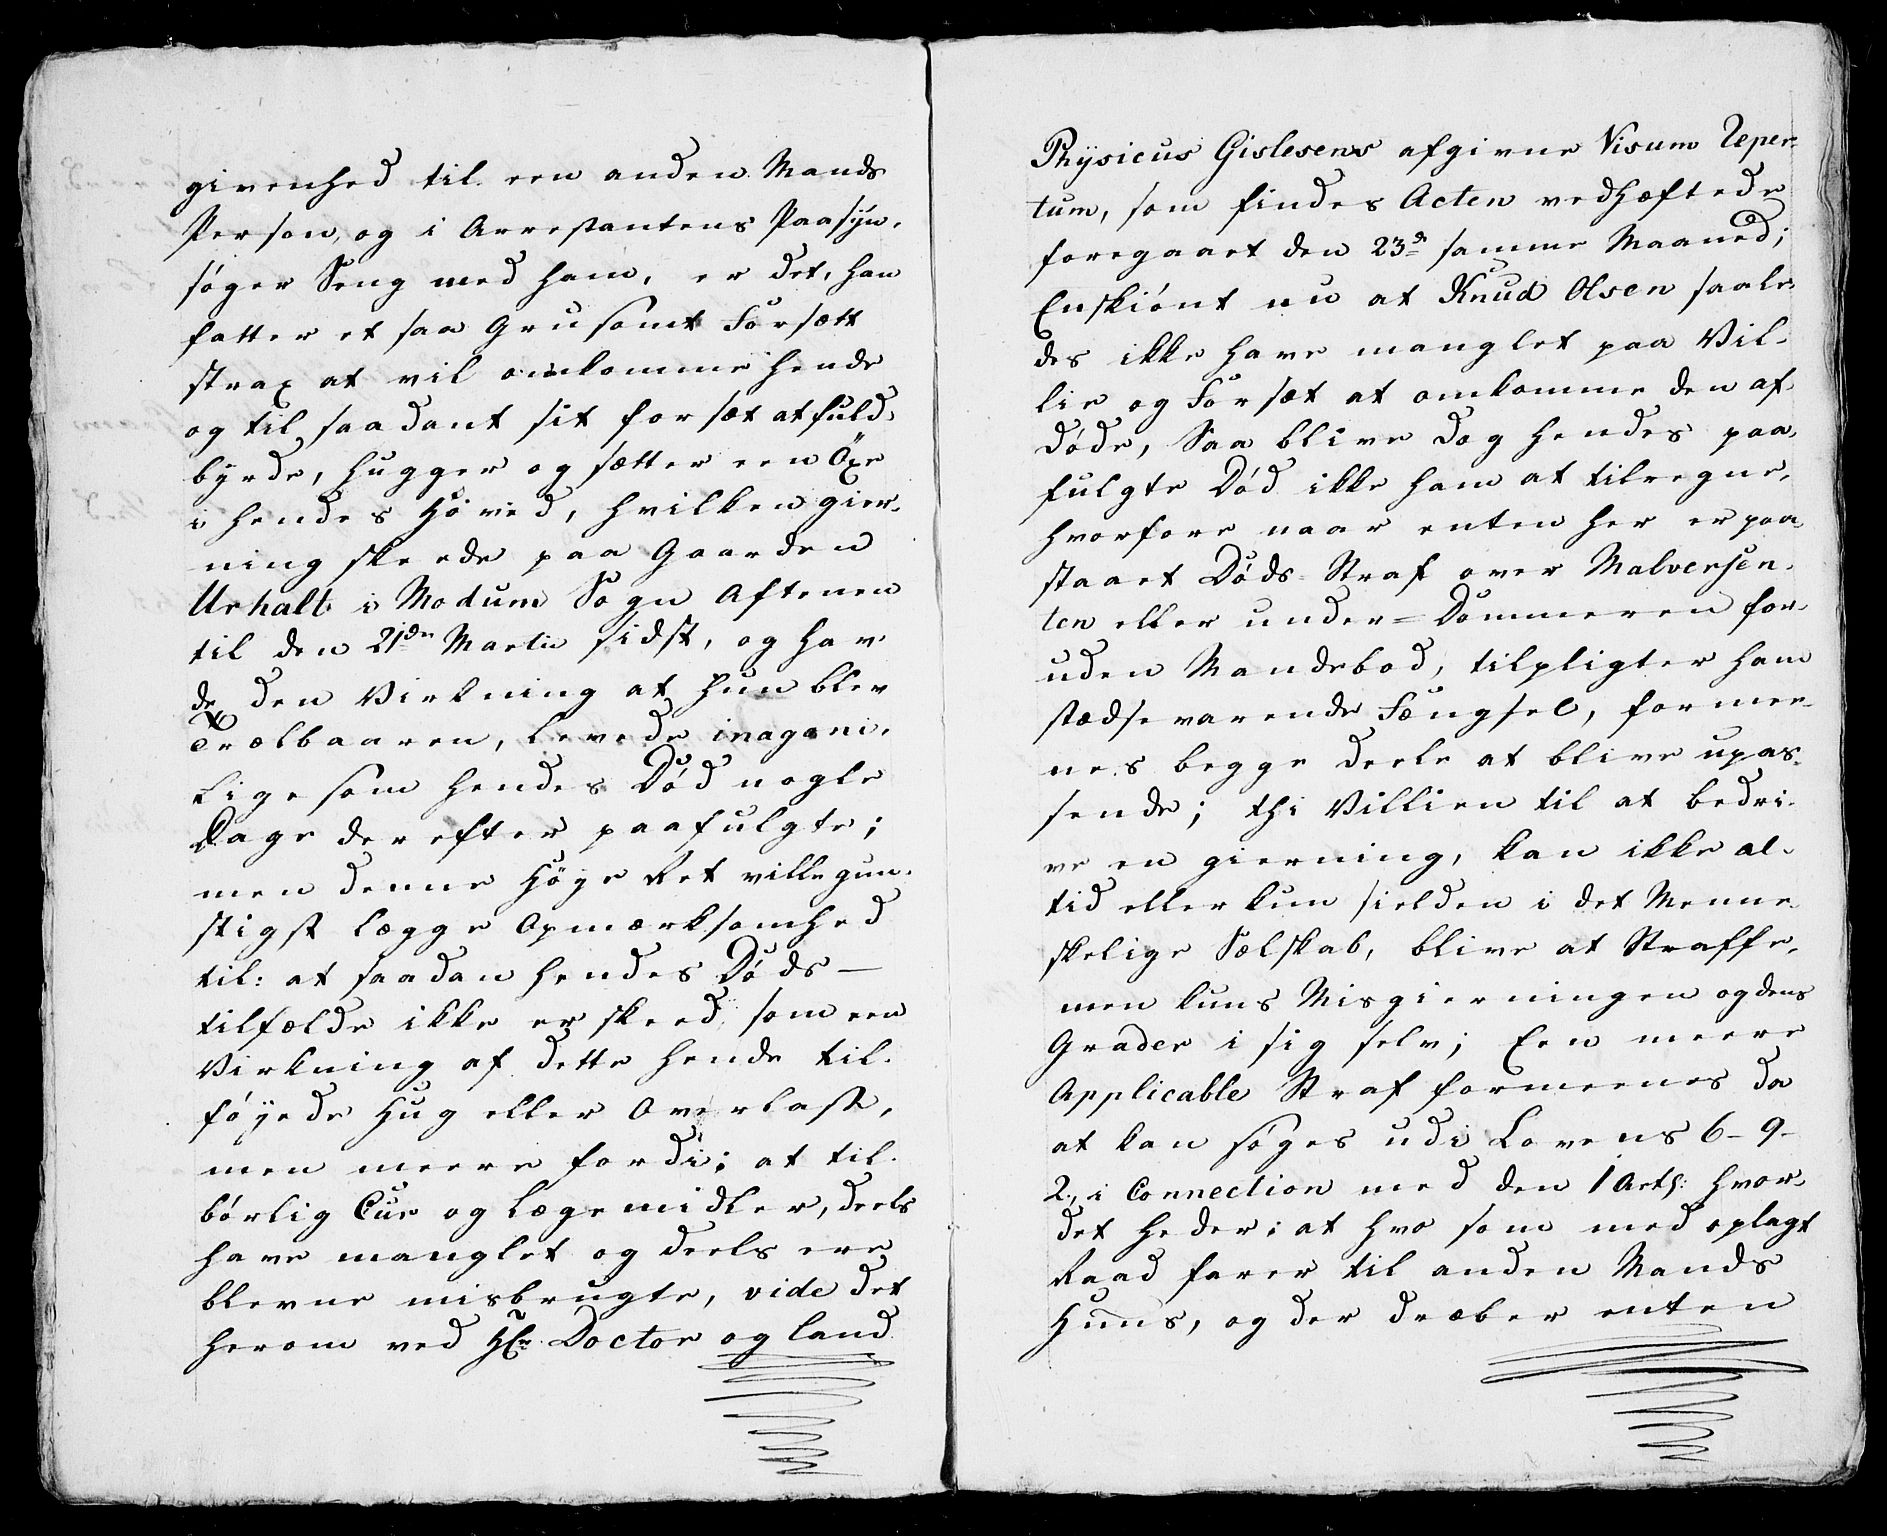 givenhed til een anden Mands
Person, og i Arrestantens Paasÿn,
søger Seng med ham, er det, han
fatter et saa Grusomt Forsætt
strax at vil omkomme hende
og til saadant sit forsæt at fuld-
byrde, hugger og sætter een Öxe
i hendes Hoved, hvilken gier-
ning skeede paa Gaarden
Urhalt i Modums Sogn Aftenen
til den 21de Martii sidst, og hav-
de den Virkning at hun blev
Trælbaaren, levede
Lige som hendes Død nogle
Dage derefter paafulgte;
men denne Höye Ret ville gun-
stigst lægge Opmærksomhed
til: at saadan hendes Døds-
tilfælde ikke er skeed, som een
Virkning af dette hende til-
føyede Hug eller Overlast,
men meere fordi; at til-
børlig Cur og lægemidler, deels
have manglet og deels ere
blevne misbrugte, vide det
herom ved Hr. Doctor og land
Physicus Gislesens afgivne Visum Reper-
tum, som findes Acten vedhæftede
foregaaet den 23de samme Maaned;
Enskiønt nu at Knud Olsen saale-
des ikke have manglet paa Vil-
lie og Forsæt at omkomme den af-
døde, Saa blive dog hendes paa-
fulgte Død ikke ham at tilregne,
hvorfore naar enten her er paa-
staaet Døds-Straf over Malversen-
ten eller under=Dommeren for-
uden Mandebod, tilpligter ham
stædsevarende Fængsel, formee-
nes begge deele at blive upas-
sende; thi Villien til at bedri-
ve en gierning, kan ikke al-
tid eller kun sielden i det Menne-
skelige Sælskab, blive at Straffe,
men kuns Misgierningen og dens
Grader i sig selv; Een meere
Applicable Straf formeenes da
at kan søges udi Lovens 6-9-
2., i Connection med den 1 Art: hvor-
det heder: at hvo som med oplagt
Raad farer til anden Mands
Huus, og der dræber enten